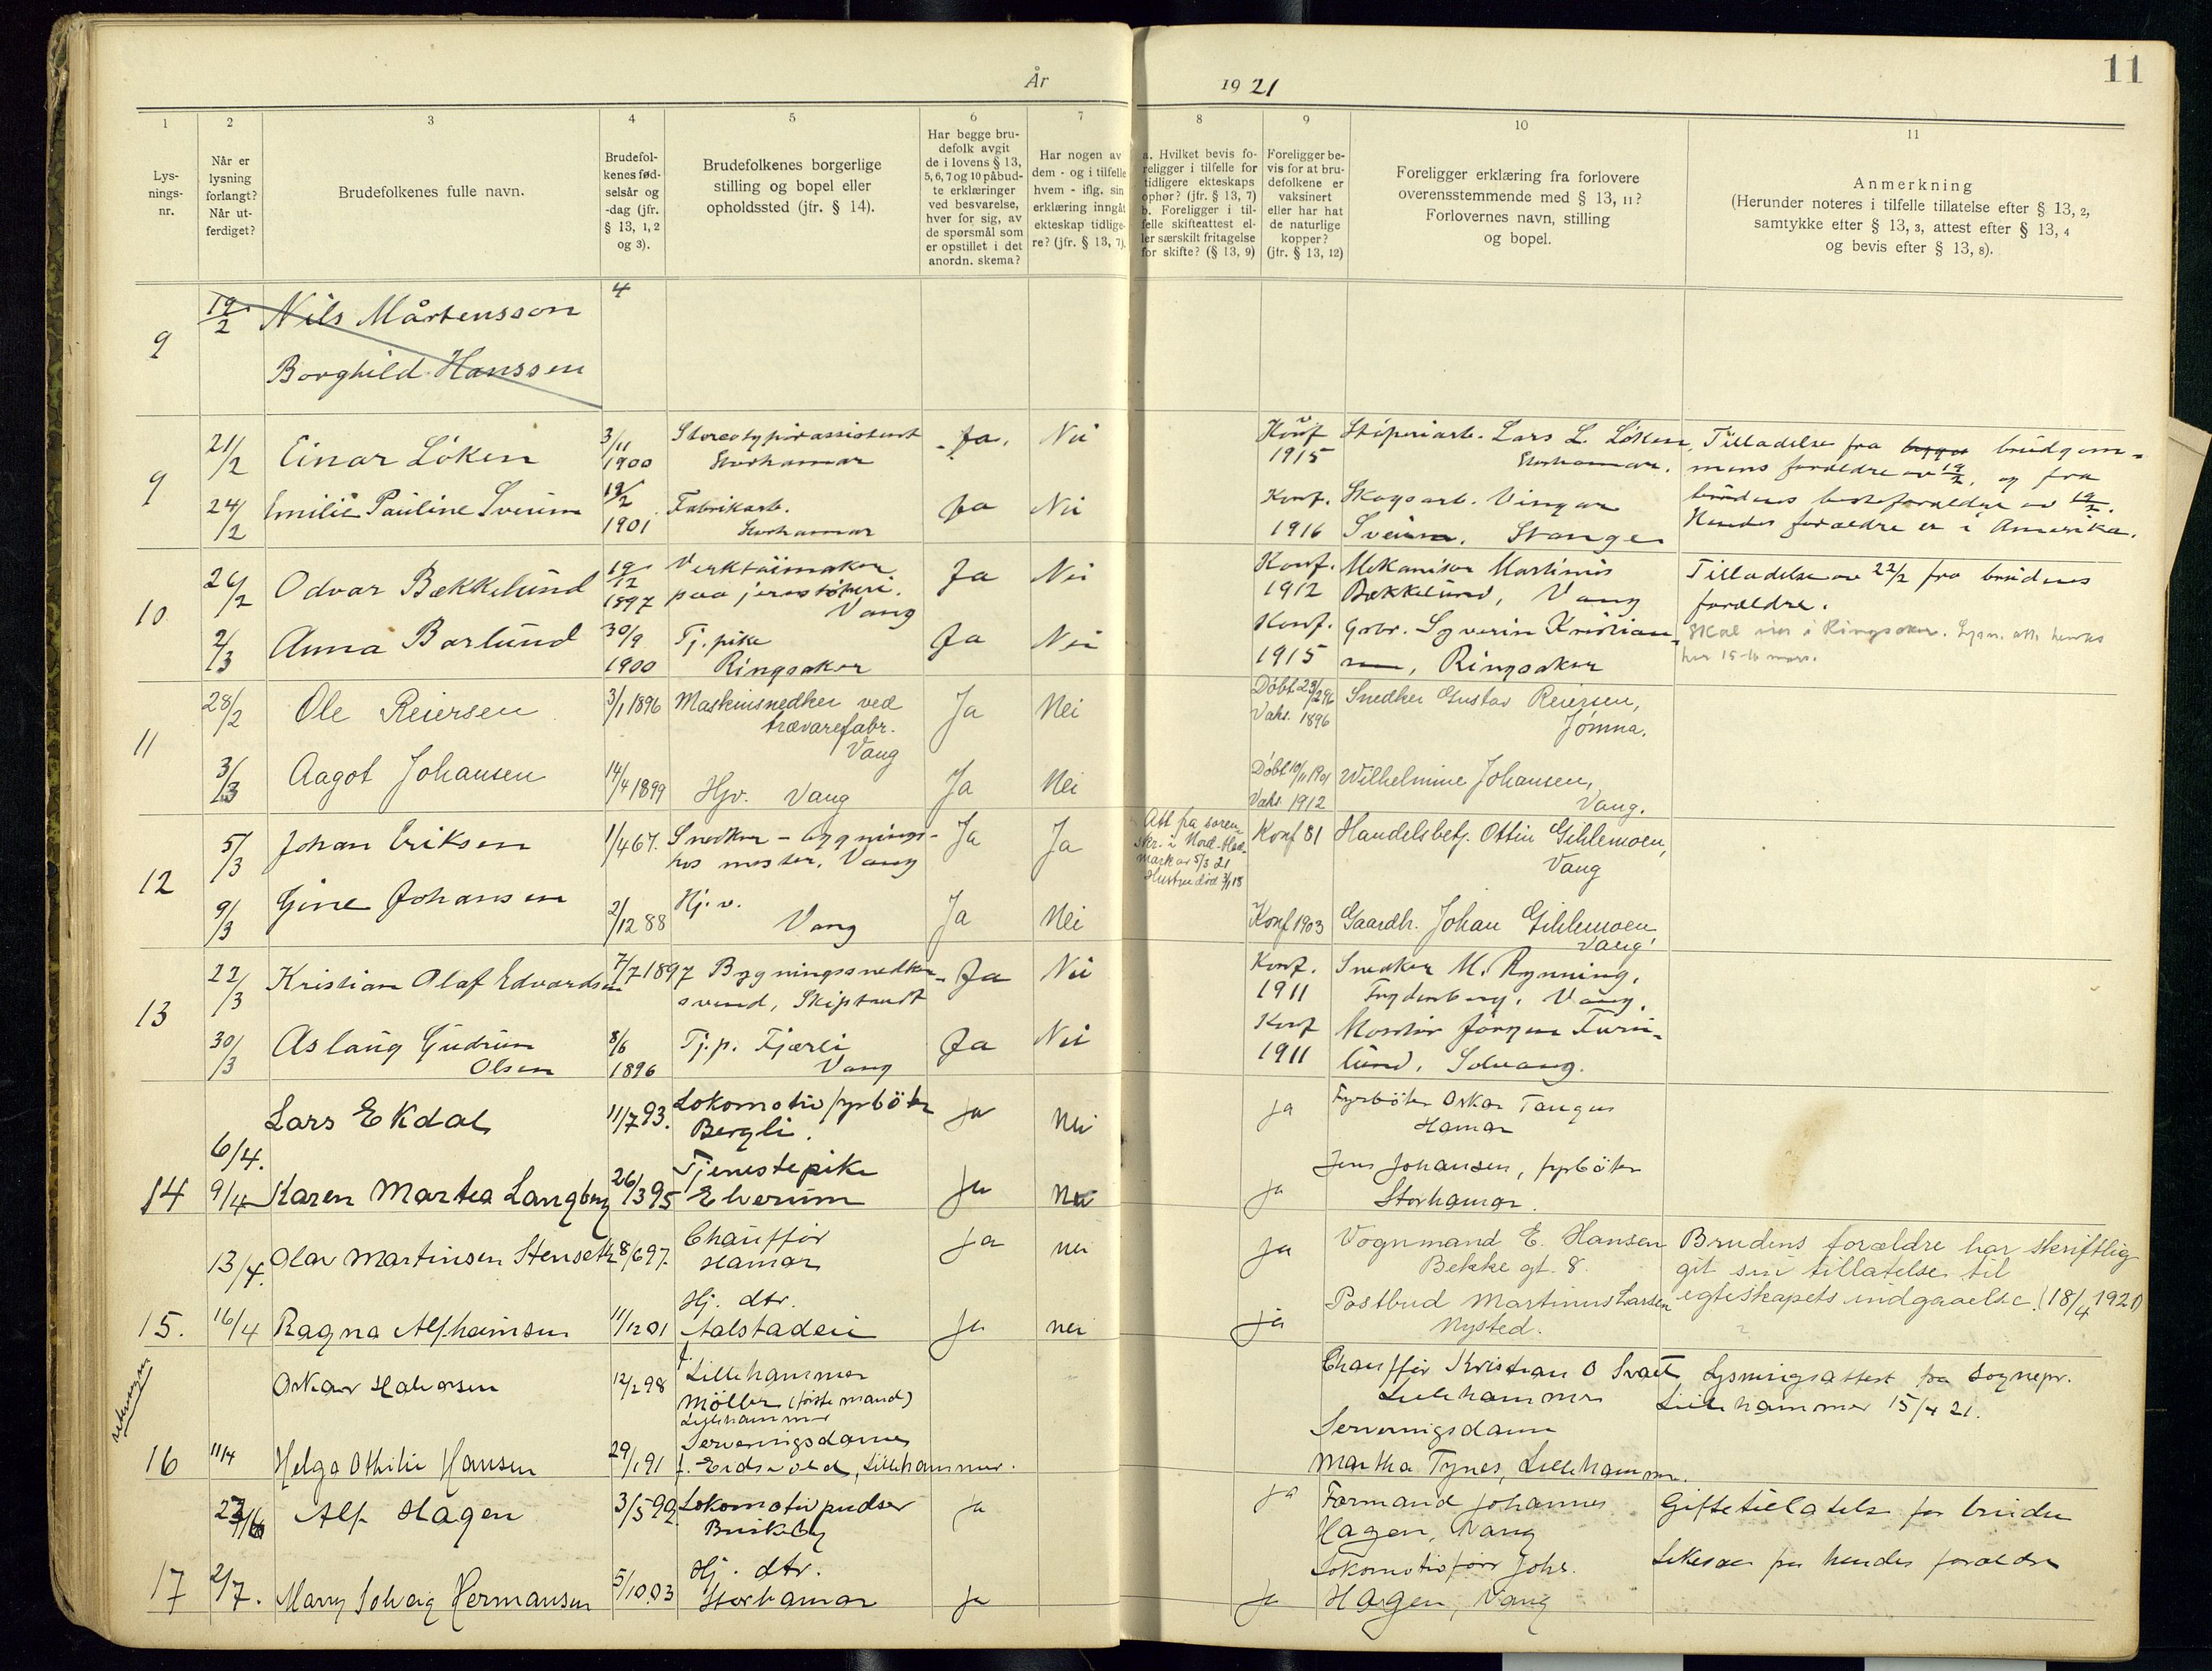 År
19 21
11
1
2
3
4
5
6
7
8
9
10
11
Lys-
nings-
nr.
Når er
lysning
forlangt?
Når ut-
ferdiget?
Brudefolkenes fulle navn.
Brudefol-
kenes fød-
selsår og
-dag (jfr.
§ 13, 1, 2
og 3).
Brudefolkenes borgerlige
stilling og bopel eller
opholdssted (jfr. § 14).
Har begge bru-
defolk avgit
de i lovens § 13,
5, 6, 7 og 10 påbud-
te erklæringer
ved besvarelse,
hver for sig, av
de spørsmål som
er opstillet i det
anordn. skema?
Har nogen av
dem - og i tilfelle
hvem - iflg. sin
erklæring inngåt
ekteskap tidlige-
re? (jfr. § 13, 7).
a. Hvilket bevis fo-
religger i tilfelle for
tidligere ekteskaps
ophør? (jfr. § 13, 7)
b. Foreligger i til-
felle skifteattest el-
ler særskilt fritagelse
for skifte? (§ 13, 9)
Foreligger be-
vis for at bru-
defolkene er
vaksinert
eller har hat
de naturlige
kopper?
(jfr. § 13, 12)
Foreligger erklæring fra forlovere
overensstemmende med § 13, 11?
Forlovernes navn, stilling
og bopel.
Anmerkning
(Herunder noteres i tilfelle tillatelse efter § 13, 2,
samtykke efter § 13, 3, attest efter § 13, 4
og bevis efter § 13, 8).
9
19/2
Nils Mårtensson
4
Borghild Hanssen
9
21/2
Einar Löken
3/11
1900
Stereotypørassistent
Storhamar
Ja.
Nei
Konf
1915
Støperiarb. Lars L. Løken
Storhamar.
Tilladelse fra brudgom-
mens forældre av 19/2, og fra
brudens besteforældre av 19/2.
Hendes forældre er i Amerika.
24/2
Emilie Pauline Sveum
19/2
1901
Fabrikarb.
Storhamar
Ja
Nei
Konf.
1916
Skogsarb. Vingar
Sveum. Stange
10
26/2
Odvar Bækkelund
19/12
1897
Verktøimaker
paa jernstøperi.
Vang
Ja
Nei
Konf.
1912
Mekanikor Martinius
Bækkelund, Vang
Tilladelse av 22/2 fra brudens
forældre.
2/3
Anna Borlund
30/9
1900
Tj. pike
Ringsaker
Ja
Nei
Konf.
1915
Gbr. Syverin Kristian-
sen, Ringsaker
Skal vies i Ringsaker. Lysn. att. hentes
her 15-16 mars.
11
28/2
Ole Reiersen
3/1 1896
Maskinsnedker ved
trævarefabr.
Vang
Ja
Nei
Døbt 23/2 96
Vaks. 1896
Snedker Gustav Reiersen,
Jømna.
3/3
Aagot Johansen
14/4 1899
Hjv. Vang
Ja
Nei
Døbt 10/11 1901
Vaks. 1912
Wilhelmine Johansen,
Vang.
12
5/3
Johan Eriksen
1/4 67.
Snedker - bygnings-
hos mester, Vang
Ja
Ja
Att. fra soren-
skr. i Nord-Hed-
mark av 5/3 21
Hustru død 3/1 18
Konf 81
Handelsbetj. Ottin Gihlemoen,
Vang
9/3
Gine Johansen
2/12 88
Hj. v.
Vang
Ja
Nei
Konf 1903
Gaardbr. Johan Gihlemoen
Vang
13
22/3
Kristian Olaf Edvardsen
7/7 1897
Bygningssnedker-
svend, Skipstadt
Ja
Nei
Konf.
1911
Snedker M. Rynning,
Frydenberg, Vang.
30/3
Aslaug Gudrun
Olsen
8/6
1896
Tj.p. Fjærli
Vang
Ja
Nei
Konf
1911
Montør Jørgen Furu-
lund, Solvang.
6/4.
Lars Ekdal
11/7 93.
Lokomotivfyrbøter
Bergli.
ja
nei
ja
Fyrbøter Oskar Tangen
Hamar
14
9/4
Karen Martea Langberg
26/3 95
Tjenestepike
Elverum
ja
nei
ja
Jens Johansen, fyrbøter
Storhamar.
13/4.
Olav Martinsen Stenseth
8/6 97.
Chauffør
Hamar
ja
nei
ja
Vognmand E. Hansen
Bekkegt. 8.
Brudens forældre har skriftlig
git sin tillatelse til
egteskapets indgaaelse. (18/4 1921)
15.
16/4
Ragna Alfhamsen
11/12 01
Hj. dtr.
Aalstadeie
ja
nei
ja
Postbud Martinus Larsen
Nysted.
Oskar Halvorsen
12/2 98
f. Lillehammer
Møller (første mand)
Lillehammer
Chauffør Kristian O Svaet
Lillehammer
Lysningsattest fra sognepr.
Lillehammer 15/4 21.
16
11/4
Helga Othilie Hansen
29/1 91
Serveringsdame
f. Eidsvold, Lillehammer.
Serveringsdame
Martha Tynes, Lillehammer.
23/6
Alf Hagen
3/5 99.
Lokomotivpudser
Briskeby
ja
ja
Formand Johannes
Hagen, Vang
Giftetillatelse for bruden
17
2/7.
Marry Solveig Hermansen
5/10 03
Hj. dtr.
Storhamar
ja
ja
Lokomotivfører Johs.
Hagen, Vang
likesaa fra hendes forældre